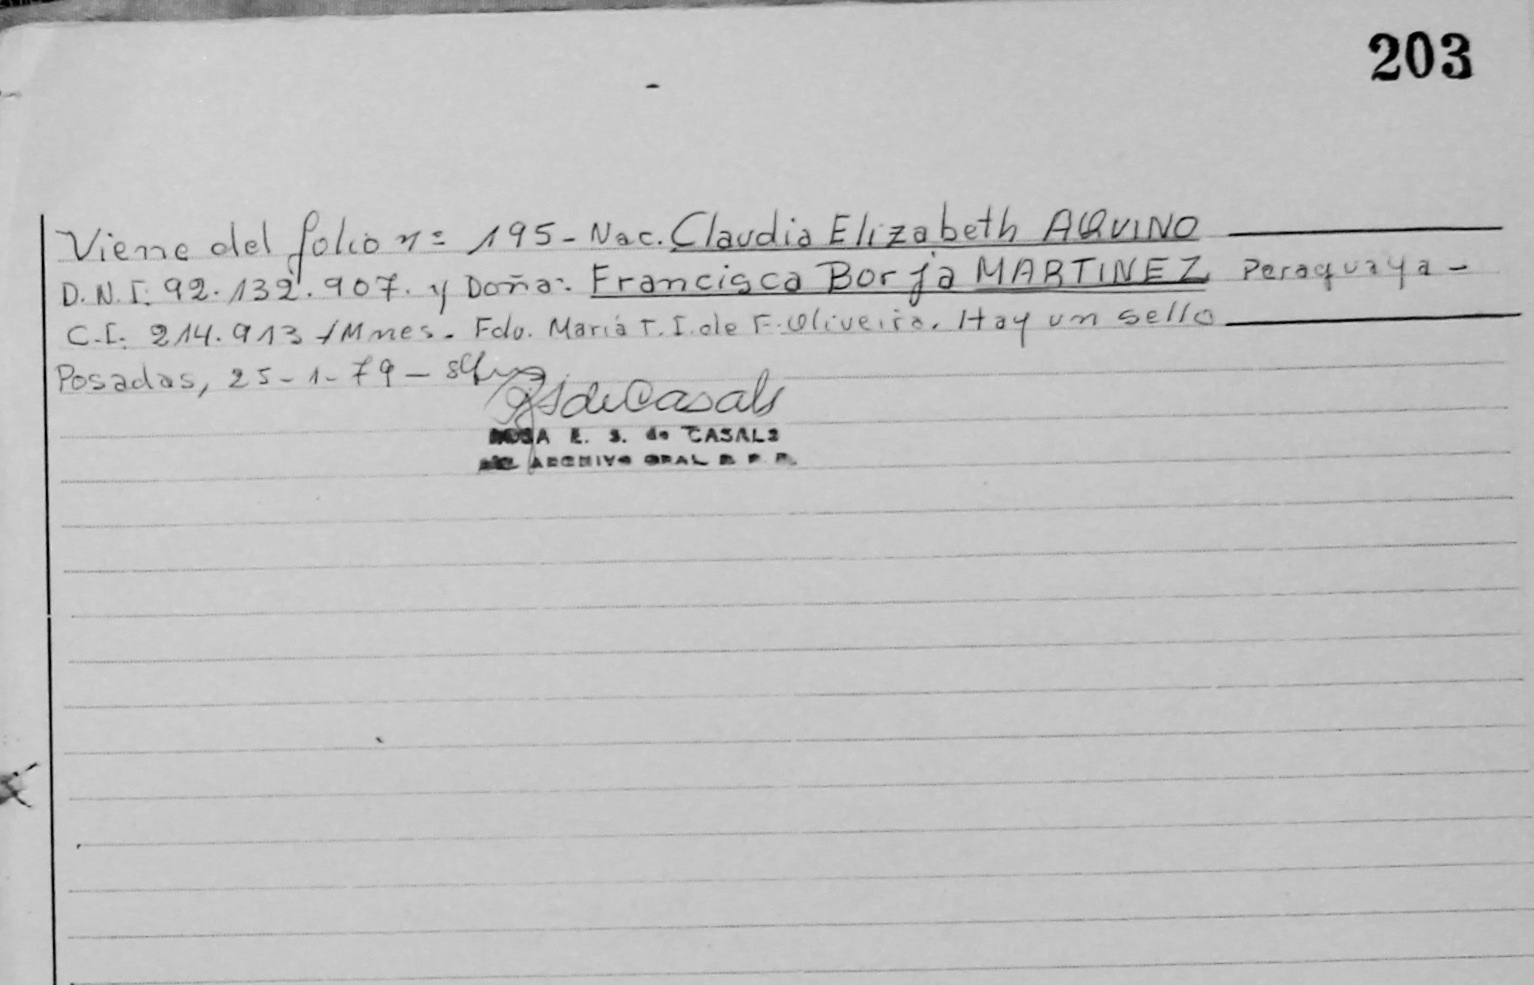 203
Viene del folio nº 195- Nac. Claudia Elizabeth AQUINO
D.N.I: 92.132.907. y Doña: Francisca Borja MARTINEZ Peraguaya-
C.I. 214.913 /Mnes. Fdo. María T. I. de F. Oliveira. Hay un sello
Posadas, 25-1-79-
RS de Casals
ROSA E. S. de CASALS
ARCHIVO GRAL R. P. P.